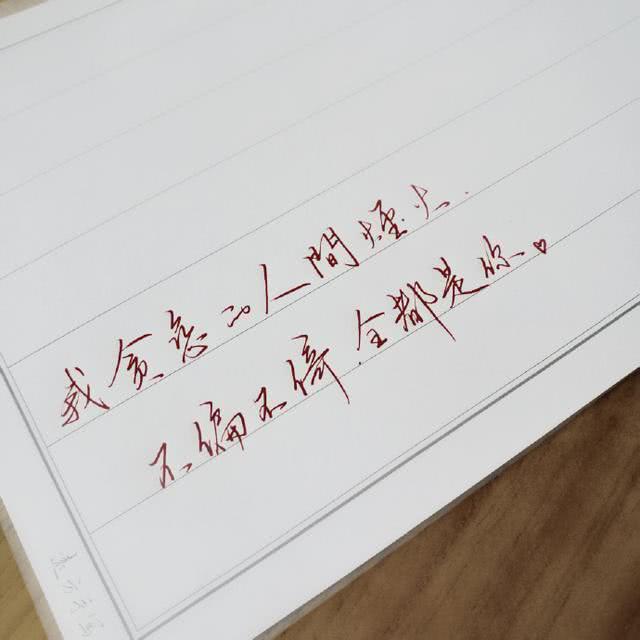 我贪恋の人間煙火.
不偏不倚.全都是你.♥